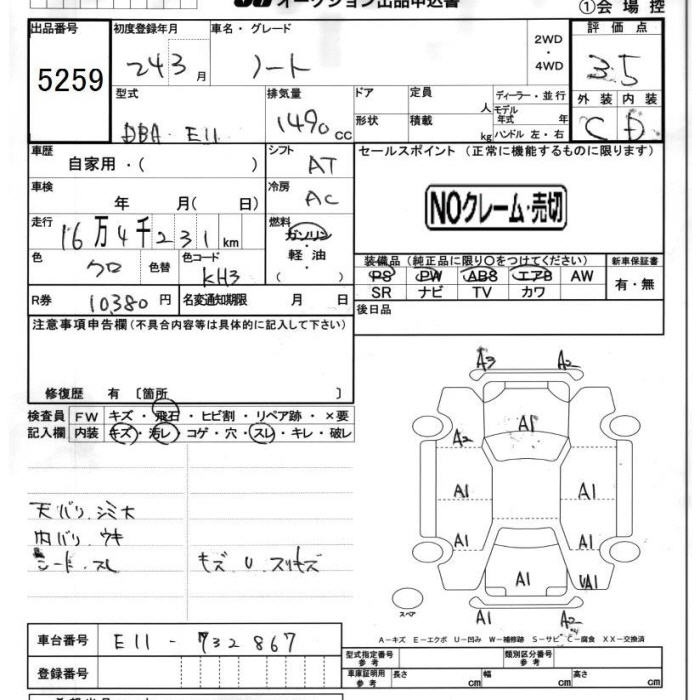 オークション出品申込書
①会場控
出品番号 初度登録年月 車名・グレード 評価点
5259 24 3月 ノート 2WD・4WD 3.5
型式 排気量 ドア 定員 人 ディーラー・並行 外装 内装
DBA E11 1490cc 形状 積載 kg モデル年式 年 ハンドル 左・右 C D
車歴 自家用・( ) シフト AT セールスポイント (正常に機能するものに限ります)
車検 年 月( 日) 冷房 AC NOクレーム・売切
走行 16万4千231km 燃料 ガソリン・軽油・( )
色 クロ 色替 色コード KH3 装備品(純正品に限り〇をつけてください) 新車保証書
PS PW ABS エアB AW 有・無
SR ナビ TV カワ
R券 10,380円 名変通知期限 月 日 後日品
注意事項申告欄(不具合内容等は具体的に記入して下さい)
修復歴 有 〔箇所 〕
検査員 FW キズ・飛石・ヒビ割・リペア跡・×要
記入欄 内装 キズ・汚レ・コゲ・穴・スレ・キレ・破レ
A3 A2
A1
A2
A1 A1
A1 A1
A1 UA1
A1 A2
スペア
天バリ シミ大
内バリ ウキ
シート スレ キズ U スリキズ
A-キズ E-エクボ U-凹み W-補修跡 S-サビ C-腐食 XX-交換済
車台番号 E11-732867
型式指定番号 参考 類別区分番号 参考
登録番号 車庫証明用 参考 長さ cm 幅 cm 高さ cm